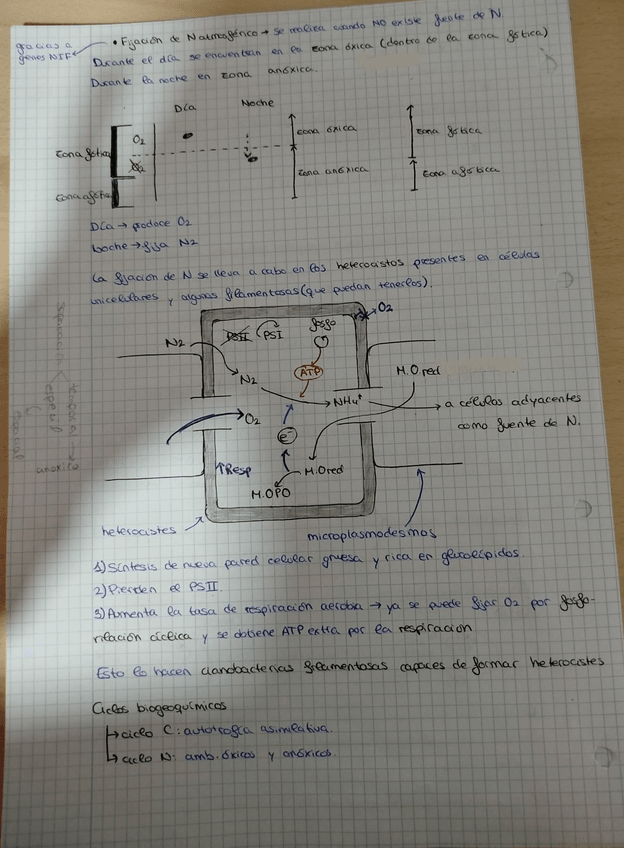 gracias a genes NIF
• Fijación de N atmosférico → se realiza cuando NO existe fuente de N
Durante el día se encuentran en la zona óxica (dentro de la zona fótica)
Durante la noche en zona anóxica.
Día
Noche
zona fótica
O2
zona óxica
zona fótica
zona afótica
zona anóxica
zona afótica
Día → produce O2
Noche → fija N2
La fijación de N se lleva a cabo en los heterocistos presentes en células
unicelulares y algunas filamentosas (que puedan tenerlos).
O2
N2
PSII
PSI
fosfo
N2
ATP
NH4+
M.O red
a células adyacentes
como fuente de N.
O2
e-
↑Resp
M.O red
M.OPO
heterocistes
microplasmodesmos
1) Síntesis de nueva pared celular gruesa y rica en glucolípidos.
2) Pierden el PSII.
3) Aumenta la tasa de respiración aerobia → ya se puede fijar O2 por fosfo-
rilación cíclica y se obtiene ATP extra por la respiración
Esto lo hacen cianobacterias filamentosas capaces de formar heterocistes
Ciclos biogeoquímicos
→ ciclo C: autotrofía asimilativa.
→ ciclo N: amb. óxicos y anóxicos.